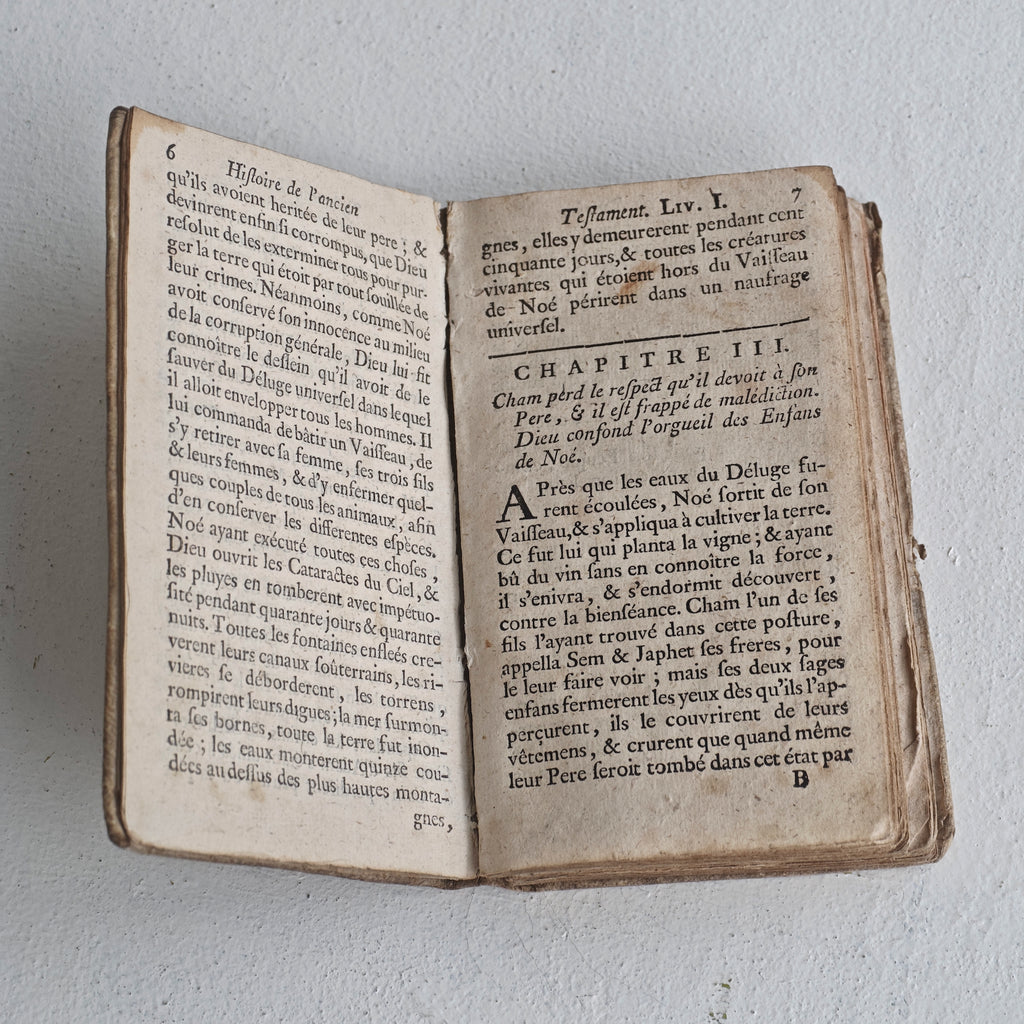 6
Hiſtoire de l'ancien
qu'ils avoient heritée de leur pere ; &
devinrent enfin ſi corrompus, que Dieu
reſolut de les exterminer tous pour pur-
ger la terre qui étoit par tout ſouillée de
leur crimes. Néanmoins, comme Noé
avoit conſervé ſon innocence au milieu
de la corruption générale, Dieu lui fit
connoître le deſſein qu'il avoit de le
ſauver du Déluge univerſel dans lequel
il alloit envelopper tous les hommes. Il
lui commanda de bâtir un Vaiſſeau, de
s'y retirer avec ſa femme, ſes trois fils
& leurs femmes, & d'y enfermer quel-
ques couples de tous les animaux, afin
d'en conſerver les differentes eſpèces.
Noé ayant exécuté toutes ces choſes,
Dieu ouvrit les Cataractes du Ciel, &
les pluyes en tomberent avec impétuo-
ſité pendant quarante jours & quarante
nuits. Toutes les fontaines enfleés cre-
verent leurs canaux ſoûterrains, les ri-
vieres ſe déborderent, les torrens,
rompirent leurs digues; la mer ſurmon-
ta ſes bornes, toute la terre fut inon-
dée ; les eaux monterent quinze cou-
dées au deſſus des plus hautes monta-
gnes,
Teſtament. LIV. I. 7
gnes, elles y demeurerent pendant cent
cinquante jours, & toutes les créatures
vivantes qui étoient hors du Vaiſſeau
de Noé périrent dans un naufrage
univerſel.
CHAPITRE III.
Cham perd le reſpect qu'il devoit à ſon
Pere, & il eſt frappé de malédiction.
Dieu confond l'orgueil des Enfans
de Noé.
APrès que les eaux du Déluge fu-
rent écoulées, Noé ſortit de ſon
Vaiſſeau, & s'appliqua à cultiver la terre.
Ce fut lui qui planta la vigne ; & ayant
bû du vin ſans en connoître la force,
il s'enivra, & s'endormit découvert,
contre la bienſéance. Cham l'un de ſes
fils l'ayant trouvé dans cette poſture,
appella Sem & Japhet ſes freres, pour
le leur faire voir ; mais ſes deux ſages
enfans fermerent les yeux dès qu'ils l'ap-
perçurent, ils le couvrirent de leurs
vêtemens, & crurent que quand même
leur Pere ſeroit tombé dans cet état par
B